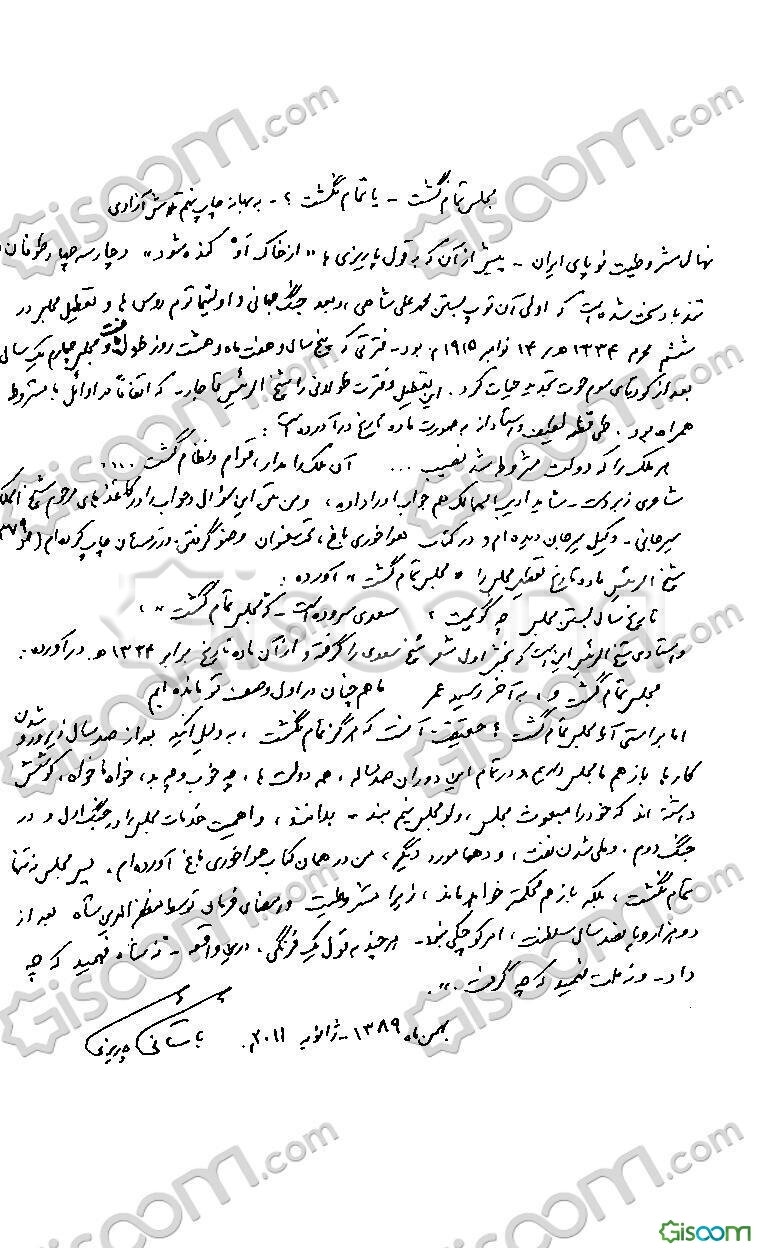 مجلس تمام گشت - یا تمام نگشت ؟ - به بهانه چاپ پنجم تلاش آزادی
نهال مشروطیت نوپای ایران - پیش از آن که به قول پاریزی ها «از خاک آو کنده شود» دچار سه چهار طوفان و
تندباد سخت شده است که اولی آن توپ بستن محمد علی شاهی، و بعد جنگ جهانی و اولتیماتوم روس ها و تعطیل مجلس در
ششم محرم ۱۳۳۴ هـ / ۱۴ نوامبر ۱۹۱۵ م بود - فترتی که پنج سال و هفت ماه و هشت روز طول داشت و مجلس چهارم یک سالی
بعد از کودتای سوم حوت تجدید حیات کرد. این تعطیل و فترت طولانی را شیخ الرئیس قاجار - که اتفاقاً در اوائل با مشروطه
همراه بود. طی قطعه لطیف و استادانه به صورت ماده تاریخ در آورده است:
هر ملک را که دولت مشروطه شد نصیب ... آن ملک را مدار، قوام و نظام گشت ....
شاعری زبردست - شاید ادیب الممالک هم جواب او را داده، و من متن این سؤال و جواب را در کاغذهای مرحوم شیخ الملک
سیرجانی - وکیل سیرجان دیده ام و در کتاب هواخوری باغ، تحت عنوان وضو گرفتن در زمستان چاپ کرده ام (ص ۳۷۹
شیخ الرئیس ماده تاریخ تعطیل مجلس را «مجلس تمام گشت» آورده:
تاریخ سال بستن مجلس چه گویمت ؟ سعدی سروده است - که «مجلس تمام گشت»،
و استادی شیخ الرئیس این است که بخش اول شعر شیخ سعدی را گرفته و از آن ماده تاریخ برابر ۱۳۳۴ هـ. در آورده:
مجلس تمام گشت و، به آخر رسید عمر ما هم چنان در اول وصف تو مانده ایم
اما براستی آیا مجلس تمام گشت ؟ حقیقت آنست که هرگز تمام نگشت، به دلیل آنکه بعد از صد سال زیر و رو شدن
کارها باز هم ما مجلس داریم و در تمام این دوران صد ساله، همه دولت ها، چه خوب و چه بد، خواه ناخواه، کوشش
داشته اند که خود را مبعوث مجلس، ولو مجلس نیم بند - بدانند، و اهمیت خدمات مجلس را در جنگ اول و در
جنگ دوم. و ملی شدن نفت، و دهها مورد دیگر، من در همان کتاب هواخوری باغ آورده ام. پس مجلس نه تنها
تمام نگشت، بلکه باز هم محکمتر خواهد ماند، زیرا مشروطیت و امضای فرمان توسط مظفرالدین شاه بعد از
دو هزار و پانصد سال سلطنت، امر کوچکی نبود - هر چند به قول یک فرنگی، درین واقعه - «نه شاه فهمید که چه
داد - و نه ملت فهمید که چه گرفت.».
بهمن ماه ۱۳۸۹ - ژانویه ۲۰۱۱م. باستانی پاریزی
Gisoom
Gisoom.com